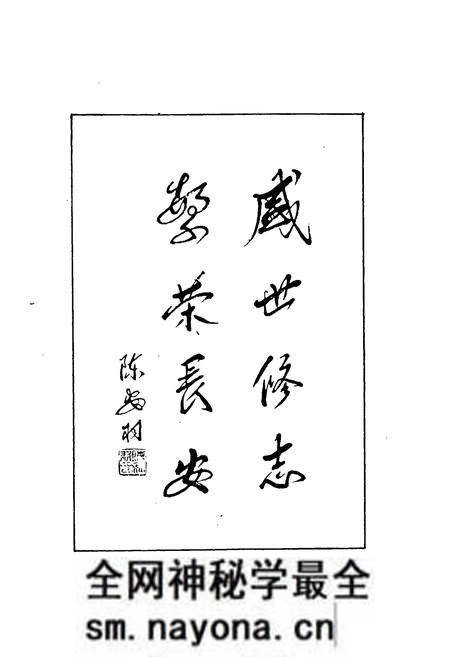 盛世修志
繁荣长安
全网神秘学最全
sm.nayona.cn